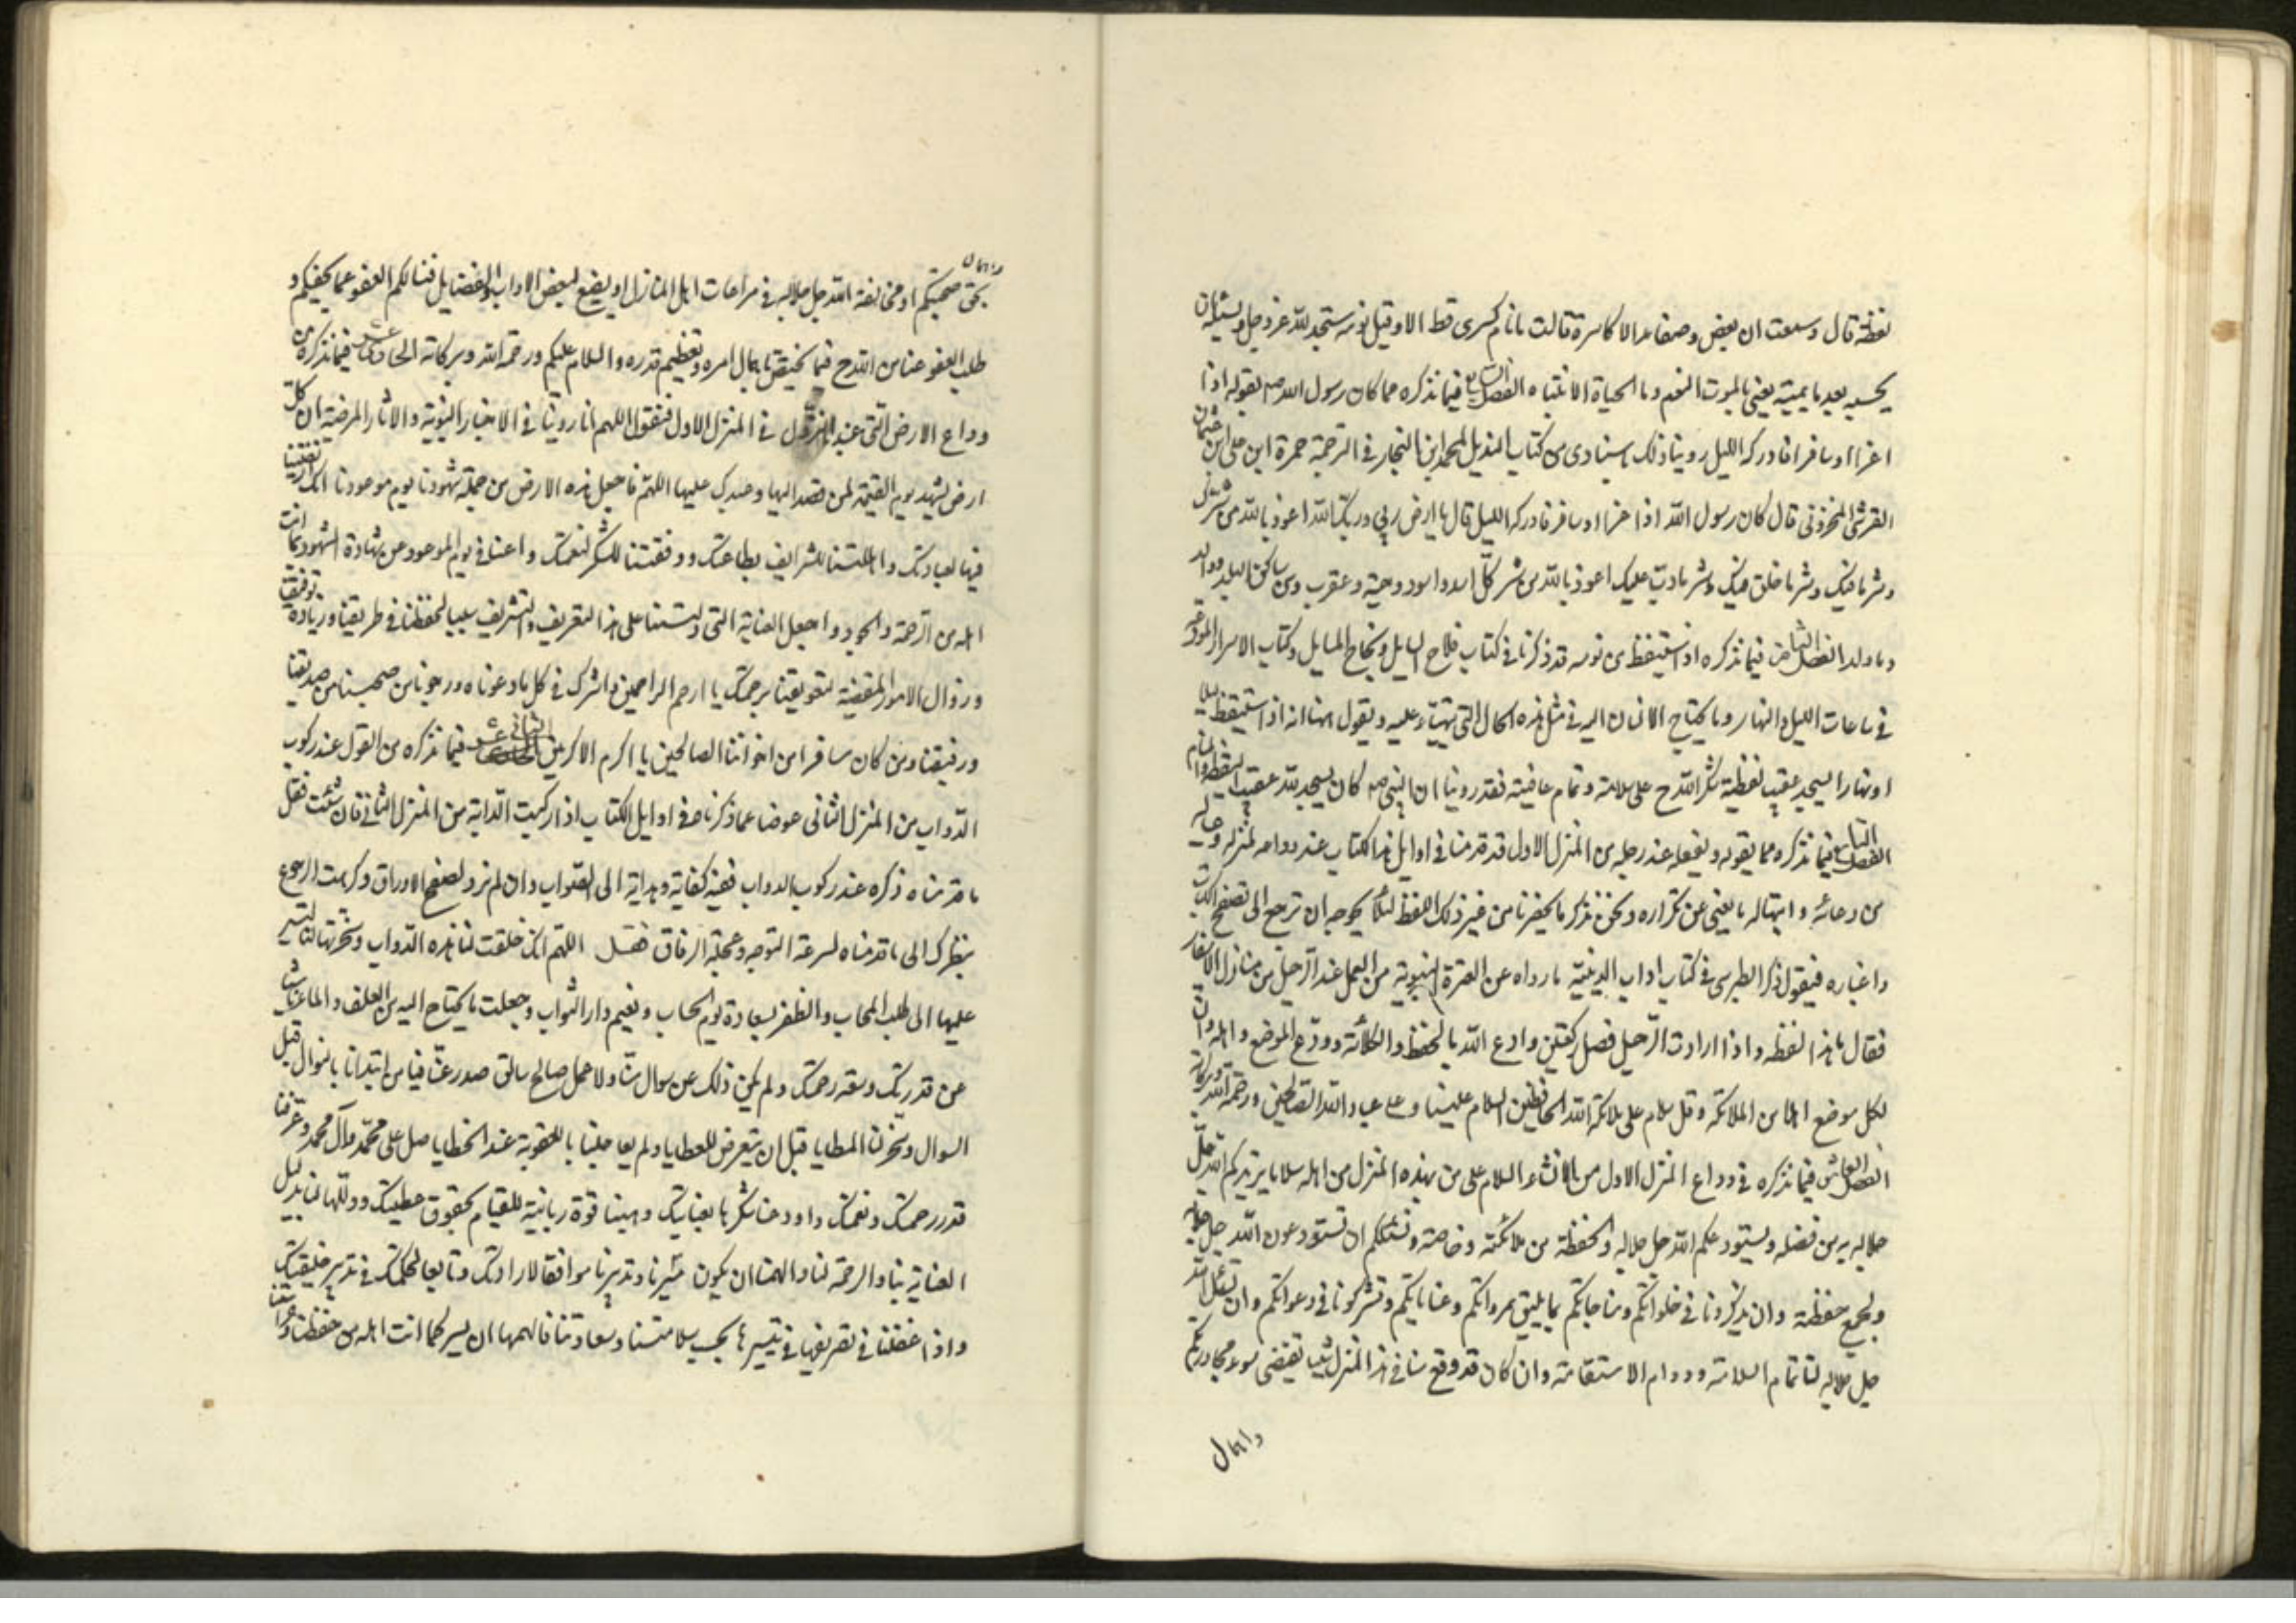 لفظة قال وسمعت ان بعض وصفاء الاكاسرة قالت ما نام كسرى قط الا وقيل نومه سجد لله عز وجل ويسئله ان
يحييه بعد ما يميته يعني بالموت النوم وبالحياة الانتباه الفصل السابع فيما نذكره مما كان رسول الله ص يقوله اذا
اغزا او سافر فادركه الليل روينا ذلك باسنادى من كتاب التذييل لمحمد ابن النجار في الترجمة حمزة ابن على ابن عثمان
القرشى المخزونى قال كان رسول الله اذا غزا او سافر فادركه الليل قال يا ارض ربى وربك الله اعوذ بالله من شرك
وشر ما فيك وشر ما خلق فيك وشر ما دب عليك اعوذ بالله من شر كل اسد واسود وحية وعقرب ومن ساكن البلد ووالد
وما ولد الفصل الثامن فيما نذكره اذا استيقظ من نومه قد ذكرنا في كتاب فلاح السايل ونجاح المسايل وكتاب الاسرار المودعة
في ساعات الليل والنهار وما يحتاج الانسان اليه في مثل هذه الحال التي ينتهى عليه ويقول هنا انه اذا استيقظ ليلا
او نهارا يسجد عقيب لفظية شكر الله ح على سلامة وتمام عافيته فقد روينا ان النبى ص كان يسجد لله عقيب اليقظة والمنام
الفصل التاسع فيما نذكره مما يقوله ويفعله عند رحيله من المنزل الاول قد قدمنا في اوايل هذا الكتاب عند وداعه لمنزله وعياله
من دعائه وابتهاله ما يغنى عن تكراره ونحن نذكر ما يحضرنا من غير ذلك اللفظ لئلا يحوجه ان ترجع الى تصفح الكتاب
واغباره فيقول ذكر الطبرسى في كتاب اداب الدينية ما رواه عن العترة النبوية من العمل عند الرحيل من منازل الاسفار
فقال ما هذا لفظه واذا اردت الرحيل فصل ركعتين وادع الله بالحفظ والكلائة وودع الموضع واهله فان
لكل موضع اهلا من الملائكة وقل سلام على ملائكة الله الحافظين السلام علينا وعلى عباد الله الصالحين ورحمة الله وبركاته
الفصل العاشر فيما نذكره في وداع المنزل الاول من الانشاء السلام على من بهذه المنزل من اهله سلاما يزيدكم الله جل
جلاله به من فضله ونستودعكم الله جل جلاله والحفظة من ملائكته وخاصته ونسئلكم ان تستودعون الله جل جلاله
ولجميع حفظته وان تذكرونا في خلواتكم ومناجاتكم بما يليق بمرواتكم وعناياتكم وتشركونا في دعواتكم وان تسئل الله
جل جلاله لنا تمام السلامة ودوام الاستقامة وان كان قد وقع منا في هذا المنزل شيئا تقتضى سوء مجاورتكم
واهمال
واهمال
بحق صحبتكم او مخالفة الله جل جلاله في مراعات اهل المنازل او يضيع لبعض الاداب والفضايل فنسالكم العفو عما يخصكم و
طلب العفو عنا من الله ح فيما يختص باهمال امره وتعظيم قدره والسلام عليكم ورحمة الله وبركاته الحادى عشر فيما نذكره من
وداع الارض التى عند النزول في المنزل الاول فنقول اللهم انا روينا في الاخبار النبوية والاثار المرضية ان كل
ارض تشهد يوم القيمة لمن قصد اليها وعبدك عليها اللهم فاجعل هذه الارض من جملة شهودنا يوم موعودنا انك
فيها لعبادتك واهلتنا للشرايف بطاعتك ووفقتنا للشكر لنعمتك واعننا في يوم الموعود عن شهادة الشهود بما انت
اهله من الرحمة والجود واجعل العناية التى على هذا التعريف والتشريف سببا لحفظنا في طريقنا وزيادة توفيقنا
وزوال الامور المقتضية لتعويقنا برحمتك يا ارحم الراحمين واشرك في كل ما دعوناه ورجوناه من صحبنا من صديقنا
ورفيقنا ومن كان مسافرا من اخواننا الصالحين يا اكرم الاكرمين الثانى عشر فيما نذكره من القول عند ركوب
الدواب من المنزل الثانى عوضا عما ذكرناه في اوايل الكتاب اذا ركبت الدابة من المنزل الثانى فان شئت فقل
ما قدمناه ذكره عند ركوب الدواب ففيه كفاية وهداية الى الصواب وان لم ترد لصفح الاوراق وكرهت الرجوع
بنظرك الى ما قدمناه لسرعة التوجه وعجلة الرفاق فقل اللهم انك خلقت لنا هذه الدواب وسخرتها لنسير
عليها الى طلب المحاب والظفر بسعادة يوم الحساب ونعيم دار الثواب وجعلت ما يحتاج اليه من العلف والماء
عن قدرتك وسعة رحمتك ولم يكن ذلك عن سوال منا ولا عمل صالح سالف صدر عنا فيا من ابتدانا بالنوال قبل
السوال وسخر لنا المطايا قبل ان يتعرض للعطايا ولم يعاجلنا بالعقوبة عند الخطايا صل على محمد وآل محمد وعرفنا
قدر رحمتك ونعمتك واودعنا شكرها بعنايتك وهبنا قوة ربانية للقيام بحقوق عطيتك وذللها لنا بذليل
العناية بنا والرحمة لنا والهمنا ان يكون مسيرنا وتدبيرنا موافقا لارادتك وتابعا لحكمتك في تدبير خليقتك
واذا غفلنا في تصريفها في تسييرها بحسب سلامتنا وسعادتنا فالهمها ان يسير كما انت اهله من حفظنا